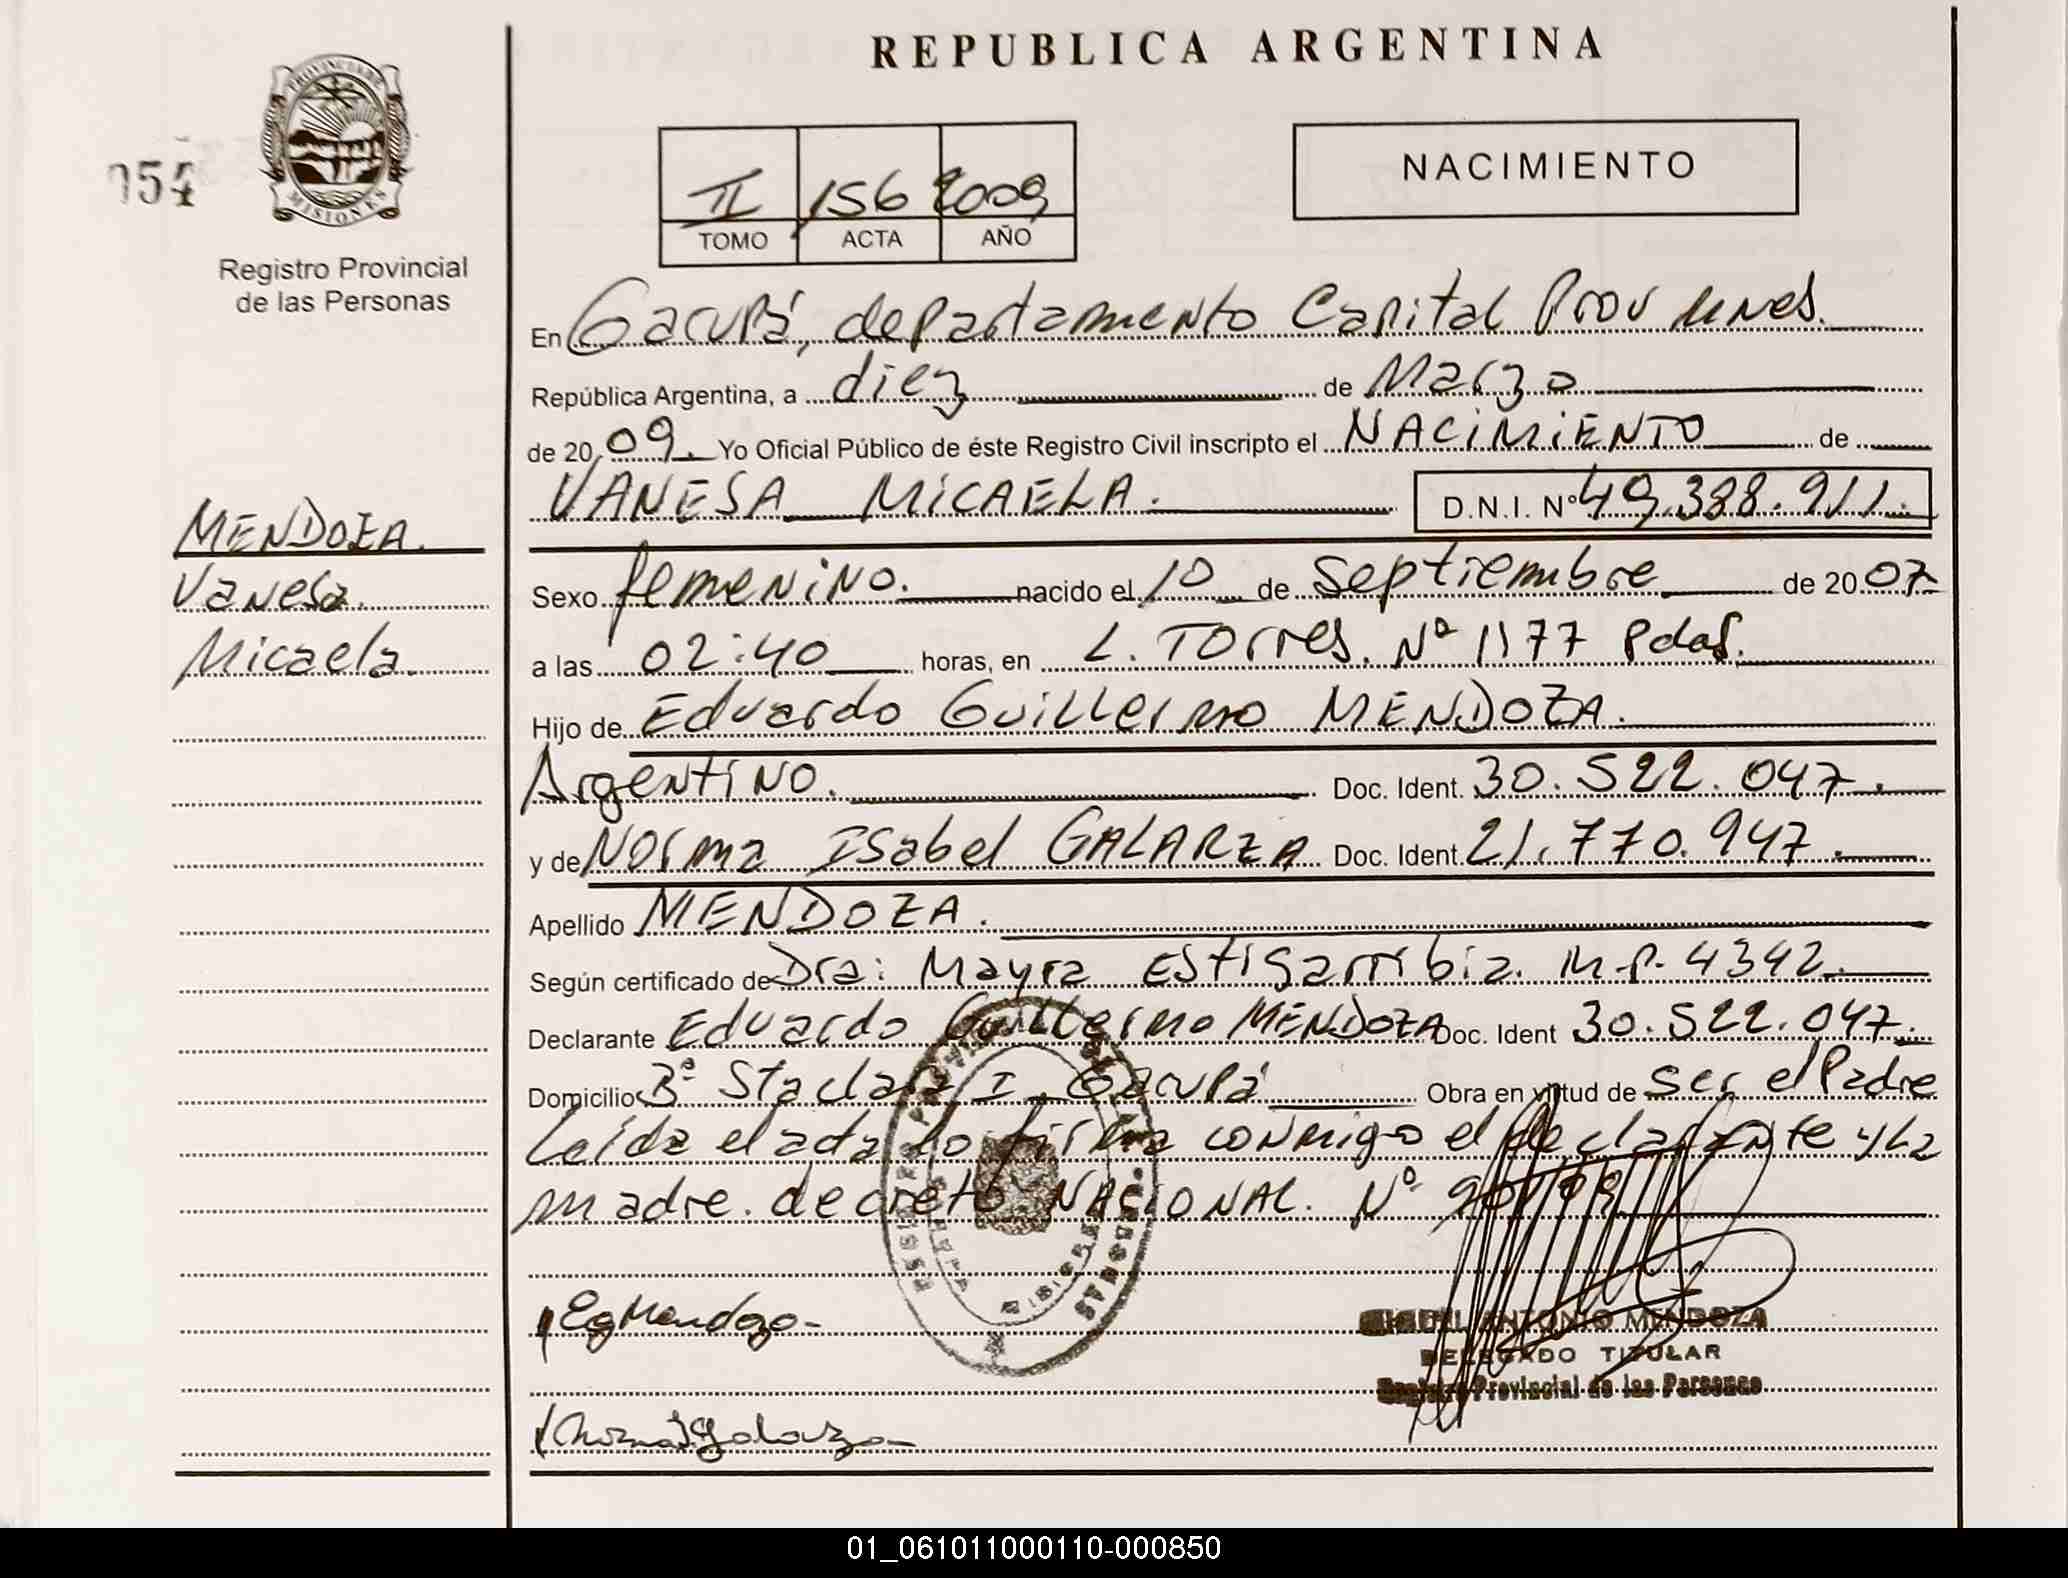 REPUBLICA ARGENTINA
PROVINCIA DE
MISIONES
054
Registro Provincial
de las Personas
II 156 2009
TOMO ACTA AÑO
NACIMIENTO
En Garupá, departamento Capital Prov Mnes.
República Argentina, a diez de Marzo
de 2009. Yo Oficial Público de éste Registro Civil inscripto el NACIMIENTO de
VANESA MICAELA. D.N.I. Nº 49.388.911.
MENDOZA.
Vanesa.
Micaela.
Sexo femenino. nacido el 10 de Septiembre de 2007
a las 02:40 horas, en L. Torres. Nº 1177 Pdas.
Hijo de Eduardo Guillermo MENDOZA.
Argentino. Doc. Ident. 30.522.047.
y de Norma Isabel GALARZA Doc. Ident. 21.770.947.
Apellido MENDOZA.
Según certificado de Dra: Mayra Estigarribia. M.P. 4342.
Declarante Eduardo Guillermo MENDOZA Doc. Ident 30.522.047.
Domicilio Bº Sta clara I. Garupá Obra en virtud de ser el Padre
Leída el acta lo firma conmigo el declarante y la
madre. decreto NACIONAL. Nº
EgMendoza
ANTONIO MENDOZA
DELEGADO TITULAR
Registro Provincial de las Personas
Galarza
01_061011000110-000850